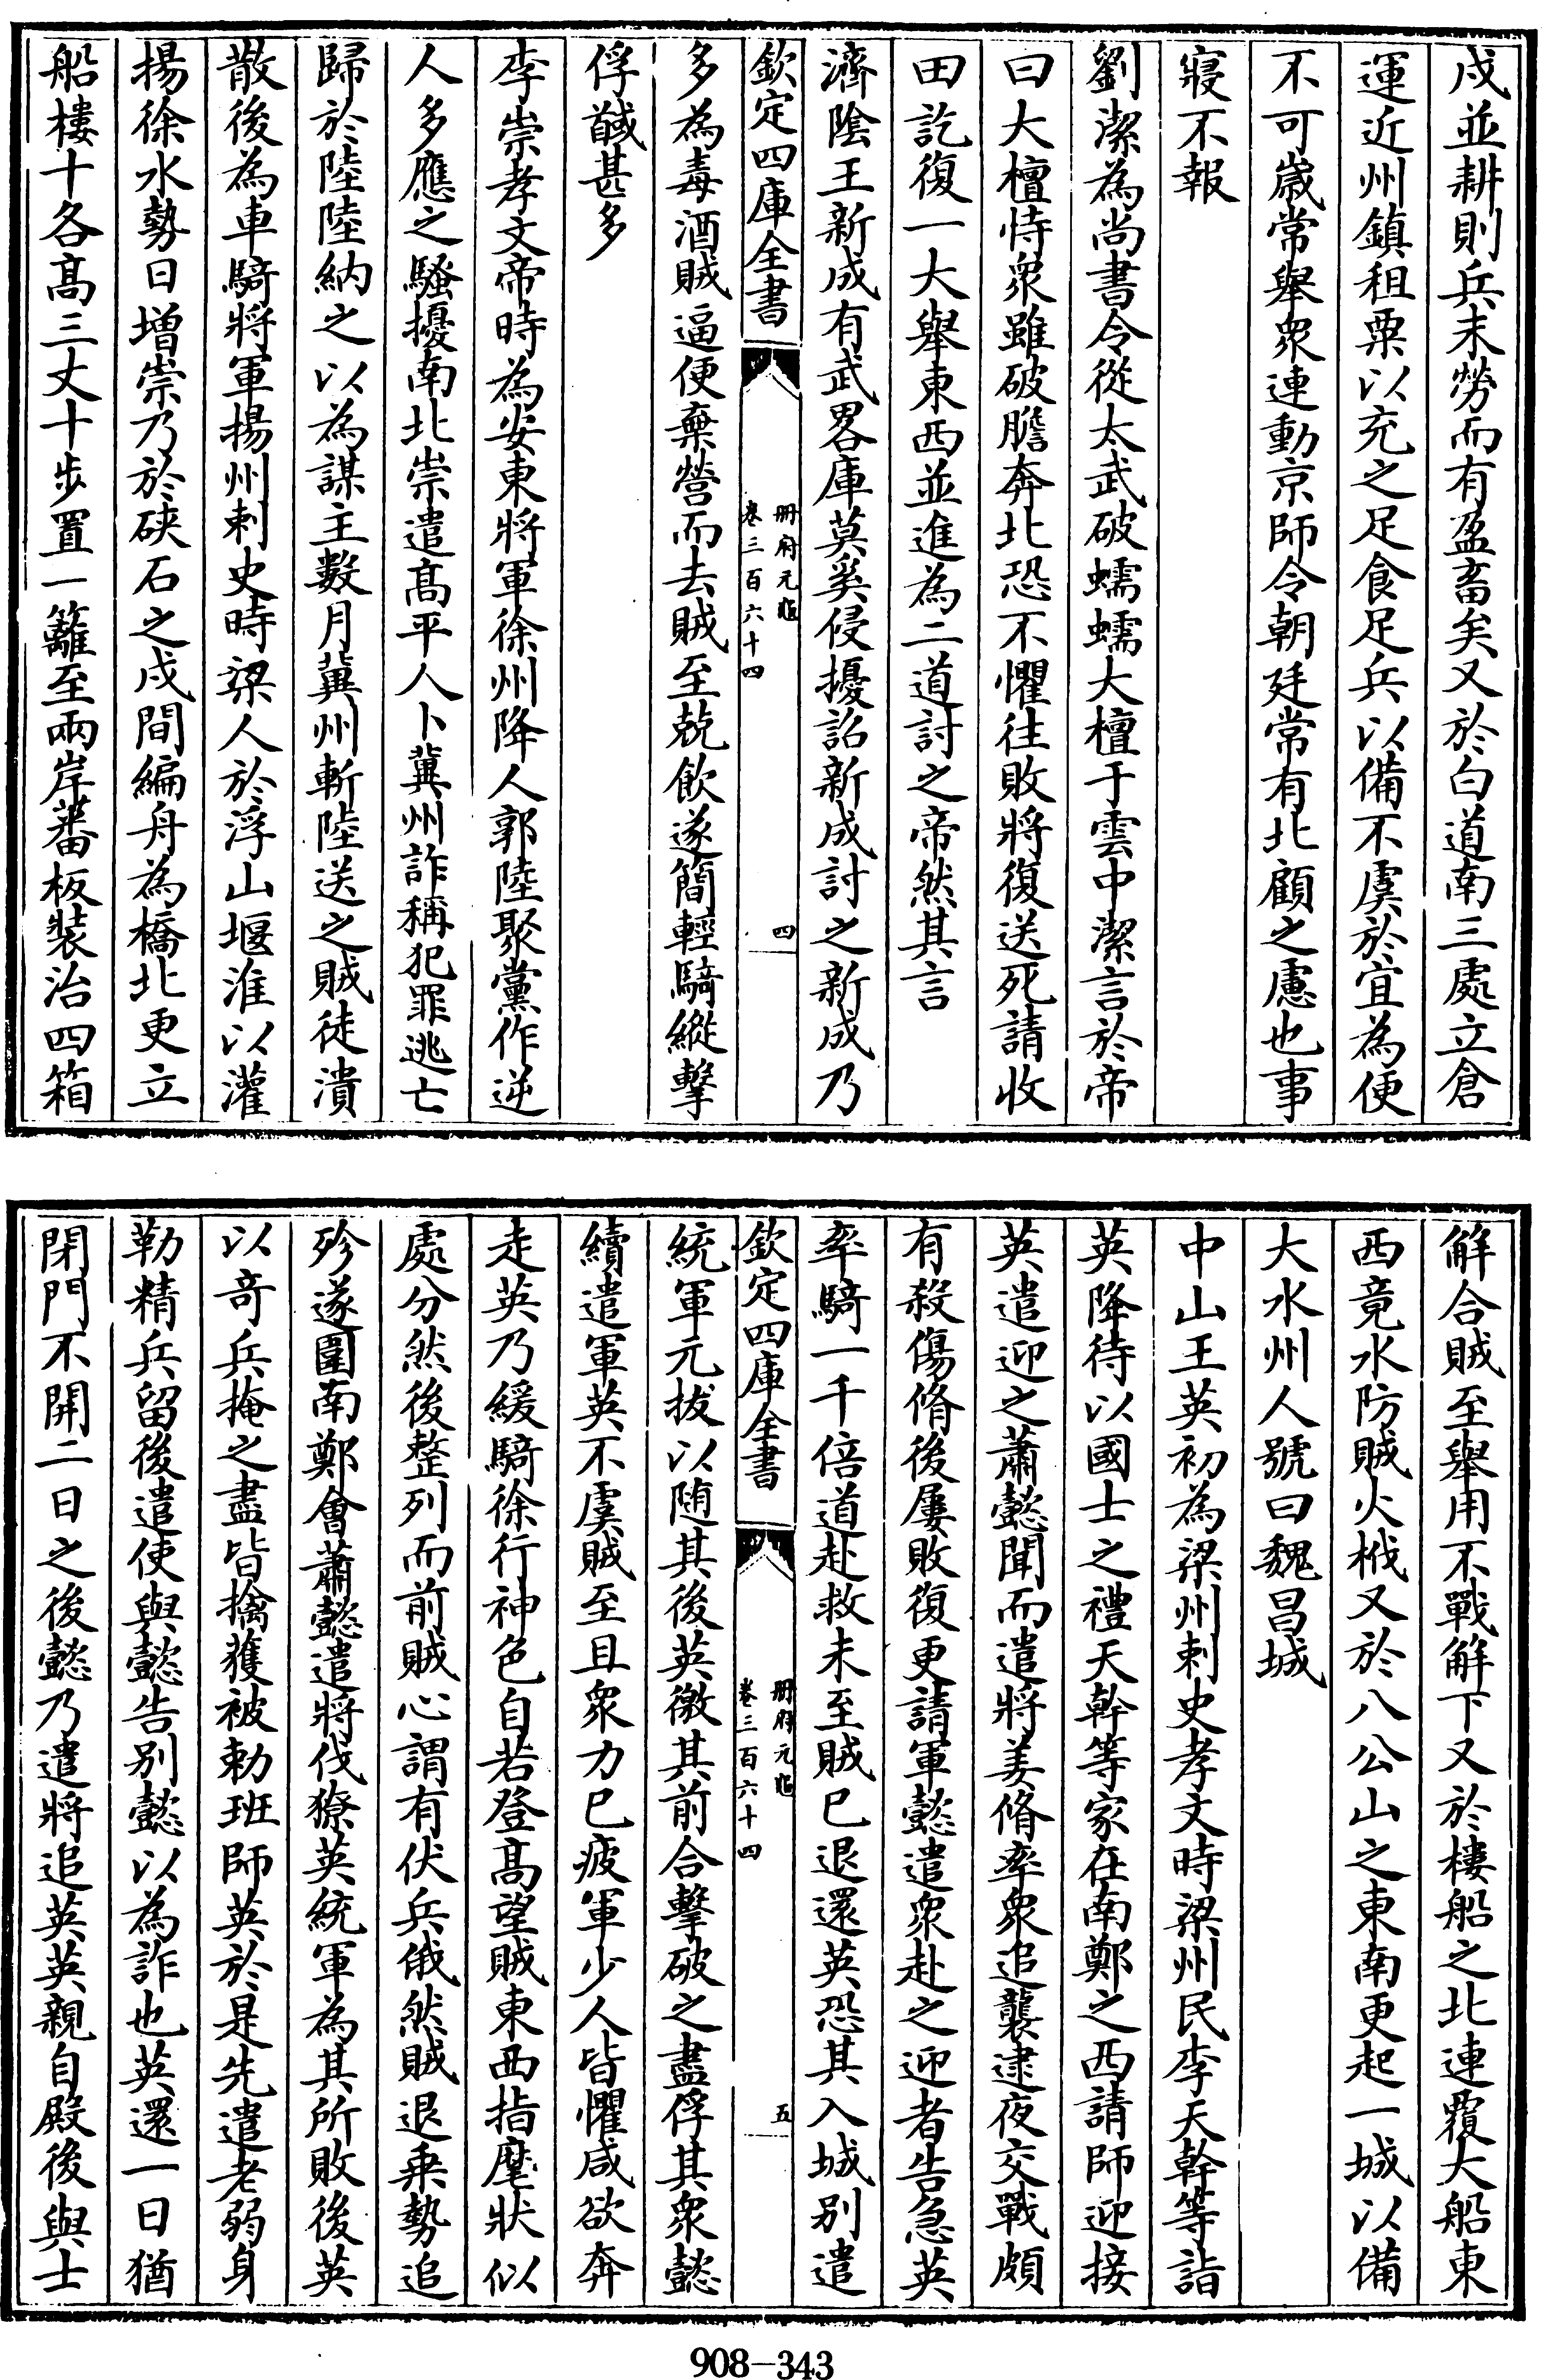 戍並耕則兵未勞而有盈畜矣又於白道南三處立倉
運近州鎮租粟以充之足食足兵以備不虞於宜為便
不可歲常舉衆連動京師令朝廷常有北顧之慮也事
寢不報
劉潔為尚書令從太武破蠕蠕大檀于雲中潔言於帝
曰大檀恃衆雖破膽奔北恐不懼往敗將復送死請收
田訖復一大舉東西並進為二道討之帝然其言
濟陰王新成有武畧庫莫奚侵擾詔新成討之新成乃
欽定四庫全書
冊府元龜
卷三百六十四
四
多為毒酒賊逼便棄營而去賊至兢飲遂簡輕騎縱擊
俘馘甚多
李崇孝文帝時為安東將軍徐州降人郭陸聚黨作逆
人多應之騷擾南北崇遣髙平人卜冀州詐稱犯罪逃亡
歸於陸陸納之以為謀主數月冀州斬陸送之賊徒潰
散後為車騎將軍揚州剌史時梁人於浮山堰淮以灌
揚徐水勢日増崇乃於硤石之戍間編舟為橋北更立
船樓十各髙三丈十步置一籬至兩岸蕃板裝治四箱
解合賊至舉用不戰解下又於樓船之北連覆大船東
西竟水防賊火栰又於八公山之東南更起一城以備
大水州人號曰魏昌城
中山王英初為梁州剌史孝文時梁州民李天幹等詣
英降待以國士之禮天幹等家在南鄭之西請師迎接
英遣迎之蕭懿聞而遣將姜脩率衆追襲逮夜交戰頗
有殺傷脩後屢敗復更請軍懿遣衆赴之迎者告急英
率騎一千倍道赴救未至賊已退還英恐其入城别遣
欽定四庫全書
冊府元龜
卷三百六十四
五
統軍元拔以随其後英徼其前合擊破之盡俘其衆懿
續遣軍英不虞賊至且衆力已疲軍少人皆懼咸欲奔
走英乃緩騎徐行神色自若登髙望賊東西指麾狀似
處分然後整列而前賊心謂有伏兵俄然賊退乗勢追
殄遂圍南鄭會蕭懿遣將伐獠英統軍為其所敗後英
以竒兵掩之盡皆擒獲被勅班師英於是先遣老弱身
勒精兵留後遣使與懿告别懿以為詐也英還一日猶
閉門不開二日之後懿乃遣將追英英親自殿後與士
908-343